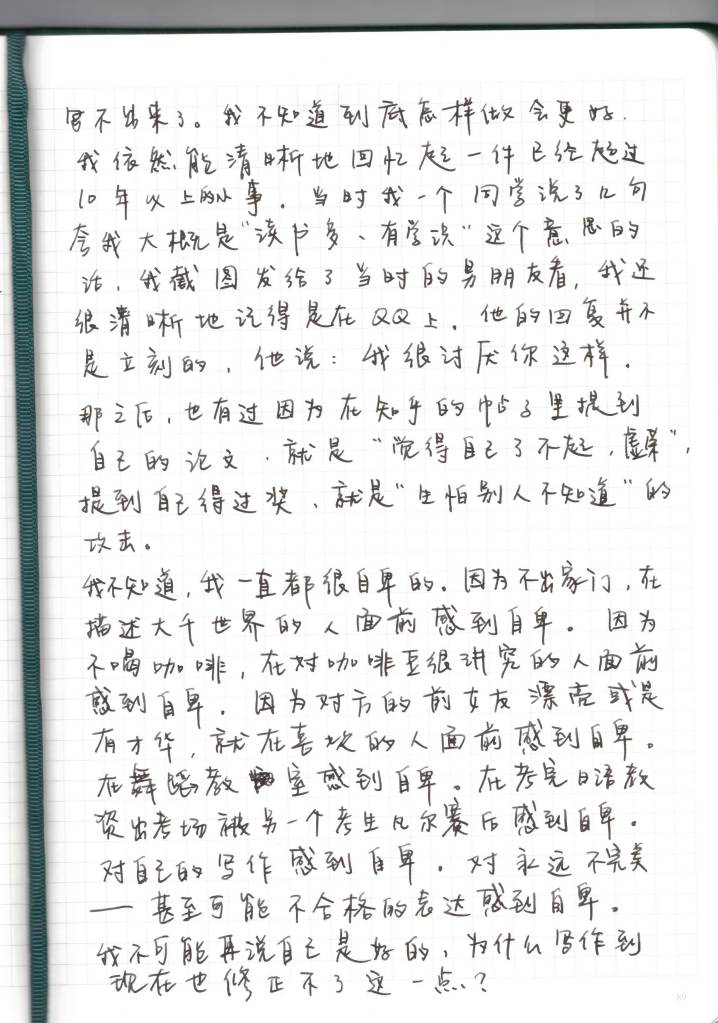 写不出来了。我不知道到底怎样做会更好.
我依然能清晰地回忆起一件已经超过
10年以上的小事。当时我一个同学说了几句
夸我大概是“读书多、有学识”这个意思的
话，我截图发给了当时的男朋友看，我还
很清晰地记得是在QQ上。他的回复并不
是立刻的，他说：我很讨厌你这样.
那之后，也有过因为在知乎的帖子里提到
自己的论文，就是“觉得自己了不起，虚荣”，
提到自己得过奖、就是“生怕别人不知道”的
攻击。
我不知道，我一直都很自卑的。因为不出家门，在
描述大千世界的人面前感到自卑。因为
不喝咖啡，在对咖啡豆很讲究的人面前
感到自卑。因为对方的前女友漂亮或是
有才华，就在喜欢的人面前感到自卑。
在舞蹈教室感到自卑。在考完日语教
资出考场被另一个考生凡尔赛后感到自卑。
对自己的写作感到自卑。对永远不完美
——甚至可能不合格的表达感到自卑。
我不可能再说自己是好的，为什么写作到
现在也修正不了这一点？
89